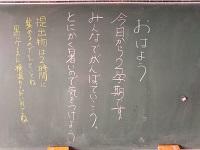 おはよう
今日から2学期です
みんなでがんばっていこう。
とにかく暑いので気をつけよう
提出物は2時間に
集めるので